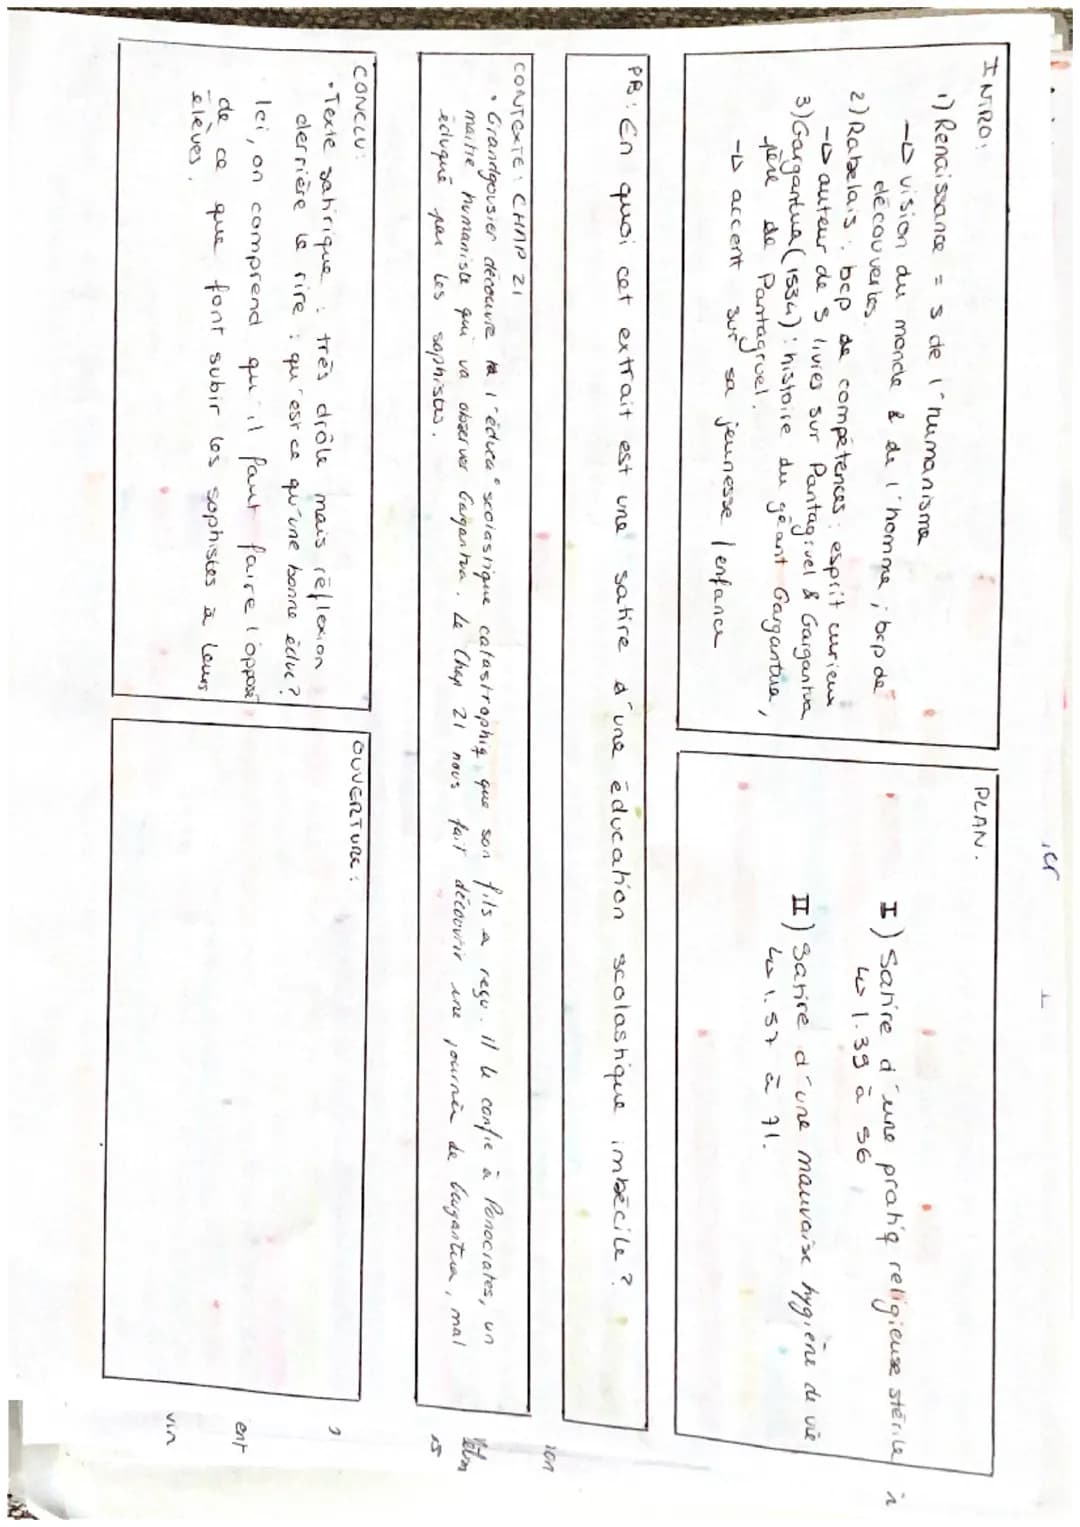 INTRO:
1) Renaissance = s de l'humanisme
→ vision du monde & de l'homme ; bcp de
découvertes.
2) Rabelais : bcp de compétences : esprit curieux
→ auteur de 5 livres sur Pantagruel & Gargantua
3) Gargantua (1534) : histoire du géant Gargantua,
père de Pantagruel.
→ accent sur sa jeunesse / enfance
PLAN.
I) Satire d'une pratiq religieuse stérile
↳ l. 39 à 56
II) Satire d'une mauvaise hygiène de vie
↳ l. 57 à 71.
PB : En quoi cet extrait est une satire d'une éducation scolastique imbécile ?
CONTEXTE : CHAP 21
• Grandgousier découvre l'éduca° scolastique catastrophiq que son fils a reçu. Il le confie à Ponocrates, un
maître humaniste qui va observer Gargantua. Le Chap 21 nous fait découvrir une journée de Gargantua, mal
éduqué par les sophistes.
CONCLU :
• Texte satirique : très drôle mais réflexion
derrière le rire : qu'est ce qu'une bonne éduc ?
Ici, on comprend qu'il faut faire l'opposé
de ce que font subir les sophistes à leurs
élèves.
OUVERTURE :
ion
ent
vin